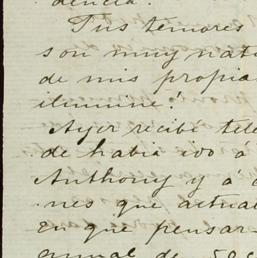 dencia.
Tus temores
son muy natu
de mis propia
ilumine!
Ayer recibí tele
de había ido á
Anthony y a
nes que actual
en que pensar
anual de 500